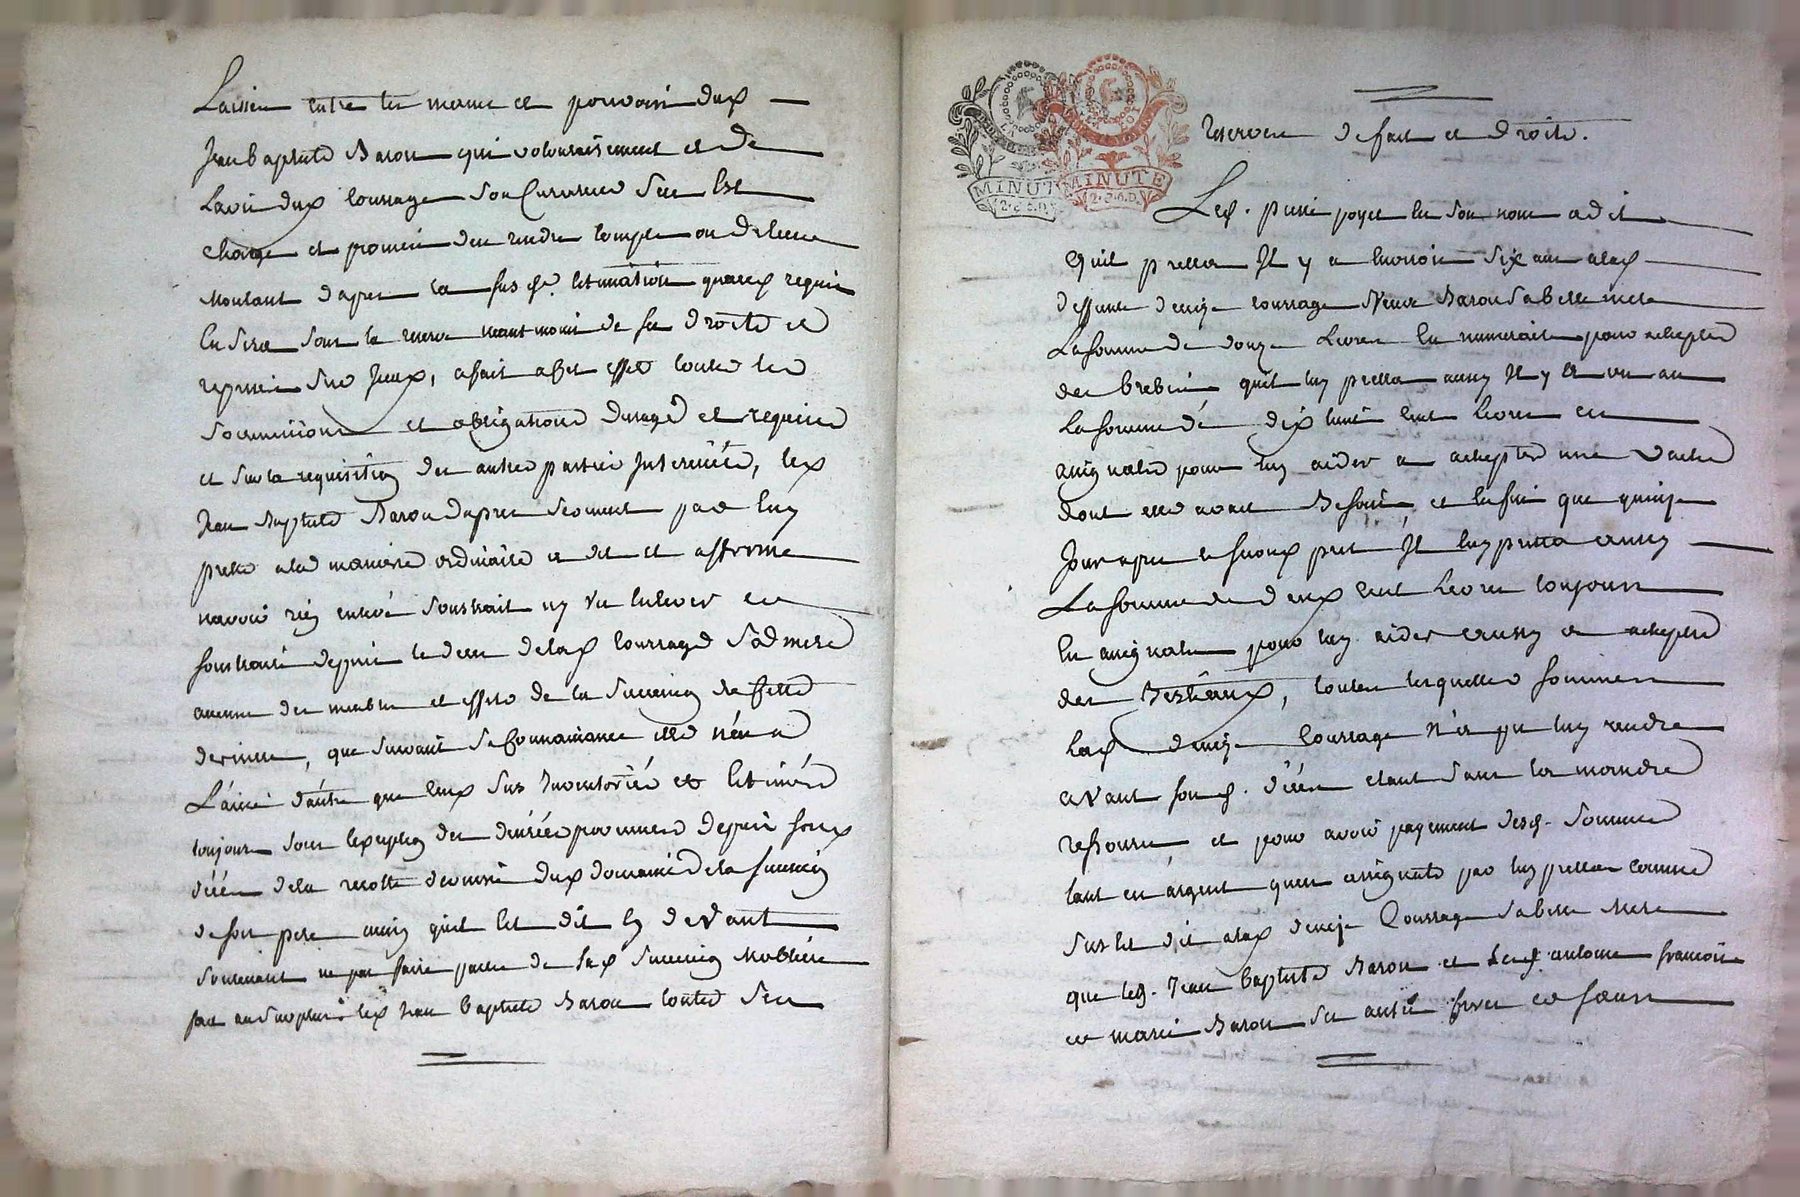 Laissés entre les mains et pouvoir dud
Jean baptiste Baron qui volontairement et de
Lavis dud Courrage son Curateur sen Est
Charge et promis den rendre Compte ou de leur
Montant dapres la susd. Estimation quand requis
En sera sous la reserve neantmoins de ses droits et
reprises sur Iceux, a fait a cet effet toutes les
Soumissions et obligations dusage et requises
et sur la requisition des autres parties Interessées, led
Jean Baptiste Baron dapres serment par luy
preté a la maniere ordinaire a dit et affirmé
navoir rien enlevé soustrait ny vu enlever et
soustraire depuis le deces de lad Courrage sad mere
aucuns des meubles et effets de la succession de cette
derniere, que suivant sa Connaissance elle n'en a
Laissé d'autres que Ceux sus Inventoriés et Estimés
toujours sous l'exception des denrées provenues depuis son
déces de la recolte dernière dud domaine de la succession
de son pere ainsy quil Est dit cy devant
soutenant ne pas faire partie de lad succession Mobiliere
fait au surplus led Jean baptiste Baron toutes ses
reserves de fait et de droits.
Led. pierre joyet En son nom a dit
quil pretta Il y a Environ six ans a lad
deffunte denize Courrage Veuve Baron sa belle mere
La somme de douze Livres En numeraire pour achepter
des brebis quil luy pretta aussy Il y a un an
La somme de dix huit Cent Livres en
assignats pour luy aider a achepter une vache
dont elle avait Besoin, et Enfin que quinze
Jours apres le second pret Il luy pretta aussy
La somme de deux Cent Livres toujours
En assignats pour luy aider aussy a achepter
des Bestiaux, toutes lesquelles sommes
Lad denize Courrage n'a pu luy rendre
avant son d. déces etant sans la moindre
ressource, et pour avoir payement desd. sommes
tant en argent quen assignats par luy prettés comme
sus Est dit a lad denize Courrage sa belle Mere
que led. Jean baptiste Baron et lesd antoine francoise
et marie Baron ses autres freres et soeurs
MINUTE
MINUTE